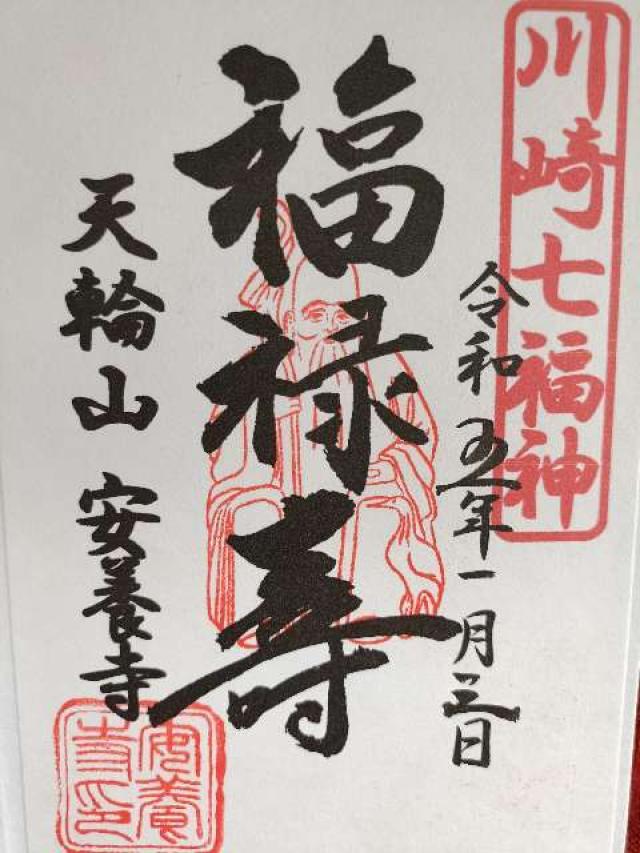 川崎七福神
令和五年一月三日
福禄寿
天輪山 安養寺
安養寺印